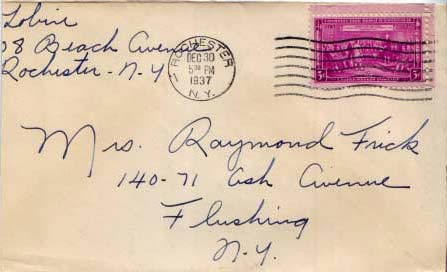 Lobin
08 Beach Avenue
Rochester - N.Y.
ROCHESTER
1
DEC 30
5 PM
1937
N.Y.
3¢
Mrs. Raymond Frick
140-71 Ash Avenue
Flushing
N.Y.